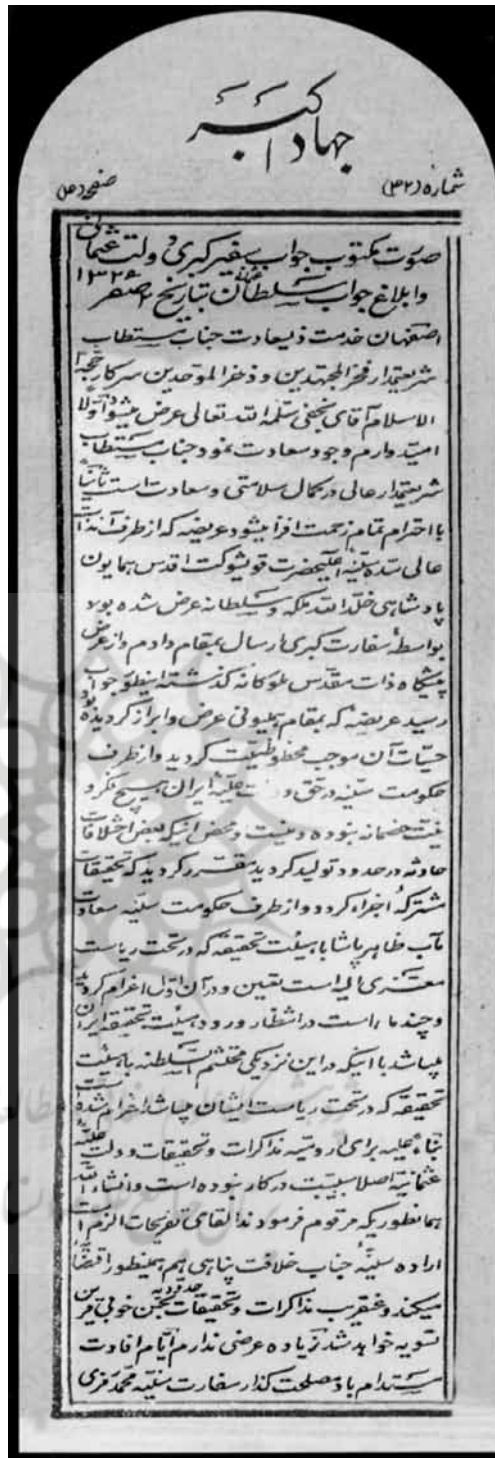 جهاد اکبر
شماره (۳۲)
صفحه (۵)
صورت مکتوب جواب سفیر کبری دولت عثمانی
وابلاغ جواب سلطان بتاریخ صفر ۱۳۲۶
اصفهان خدمت ذیسعادت جناب مستطاب
شریعتمدار فخر المجتهدین و ذخر الموحدین سرکار حجة
الاسلام آقای نجفی سلمه الله تعالی عرض میشود اولا
امیدوارم وجود سعادت نمود جناب مستطاب
شریعتمدار عالی در کمال سلامتی و سعادت است ثانیاً
با احترام تمام زحمت افزا میشود عریضه که از طرف آنذات
عالی بسده سنیه اعلیحضرت قویشوکت اقدس همایون
پادشاهی خلد الله ملکه و سلطانه عرض شده بود
بواسطه سفارت کبری ارسال بمقام دادم و از عرض
پیشگاه ذات مقدس ملوکانه گذشته اینطور جواب
رسید عریضه که بمقام همیونی عرض و ابراز گردیده بود
حسیات آن موجب محظوظیت گردید و از طرف
حکومت سنیه در حق دولت علیه ایران هیچ فکر و
نیت خصمانه نبوده و نیست و محض اینکه بعض اختلافات
حادثه در حدود تولید گردید مقرر گردید که تحقیقات
مشترکه اجراء گردد و از طرف حکومت سنیه سعادت
مآب طاهر پاشا با هیئت تحقیقه که در تحت ریاست
معزی الیه است تعیین و در آن اوان اعزام گردید
و چند ماه است در انتظار ورود هیئت تحقیقه ایران
میباشد با اینکه در این نزدیکی محتشم السلطنه با هیئت
تحقیقه که در تحت ریاست ایشان میباشد اعزام شده است
بناء علیه برای ارومیه مذاکرات و تحقیقات دولت علیه
عثمانیه اصلا سببیت در کار نبوده است و انشاء الله
همانطوریکه مرقوم فرمودند القای تفریحات الزم است
اراده سنیه جناب خلافت پناهی هم همینطور اقتضا
میکند و عنقریب مذاکرات و تحقیقات حدودیه بحسن خوبی قرین
تسویه خواهد شد زیاده عرضی ندارم ایام افادت
مستدام باد مصلحت گذار سفارت سنیه محمد فرزی